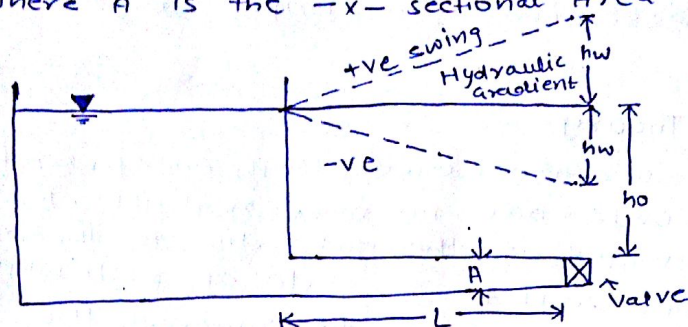 here A is the -x- sectional Area
+ve swing
Hydraulic
gradient
hw
-ve
hw
ho
A
valve
L